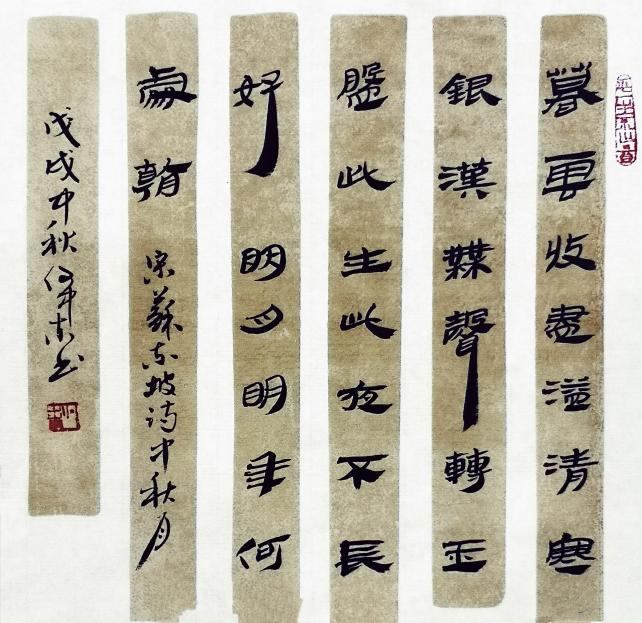 暮雲收盡溢清寒
銀漢無聲轉玉
盤此生此夜不長
好明月明年何
處看 宋蘇东坡诗中秋月
戊戌中秋 东书